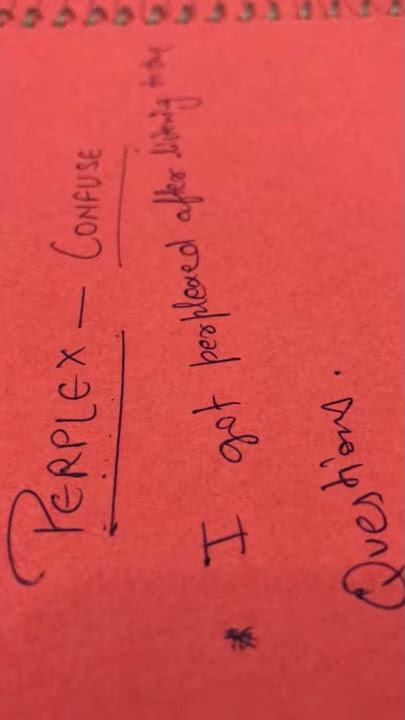 PERPLEX - CONFUSE
* I got perplexed after listing to the
Questions.